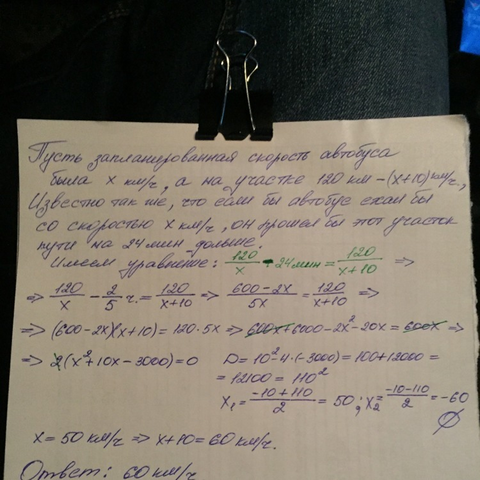 Пусть запланированная скорость автобуса
была x км/ч, а на участке 120 км – (x+10) км/ч,
Известно так же, что если бы автобус ехал бы
со скоростью x км/ч, он прошел бы этот участок
пути на 24 мин дольше.
Имеем уравнение: 120/x - 24 мин = 120/(x+10) =>
=> 120/x - 2/5 ч. = 120/(x+10) => (600-2x)/5x = 120/(x+10) =>
=> (600-2x)(x+10) = 120·5x => 600x+6000-2x²-20x = 600x =>
=> 2(x²+10x-3000)=0 D = 10²-4·(-3000) = 100+12000 =
= 12100 = 110²
x₁ = (-10+110)/2 = 50; x₂ = (-10-110)/2 = -60
∅
x = 50 км/ч => x+10 = 60 км/ч.
Ответ: 60 км/ч